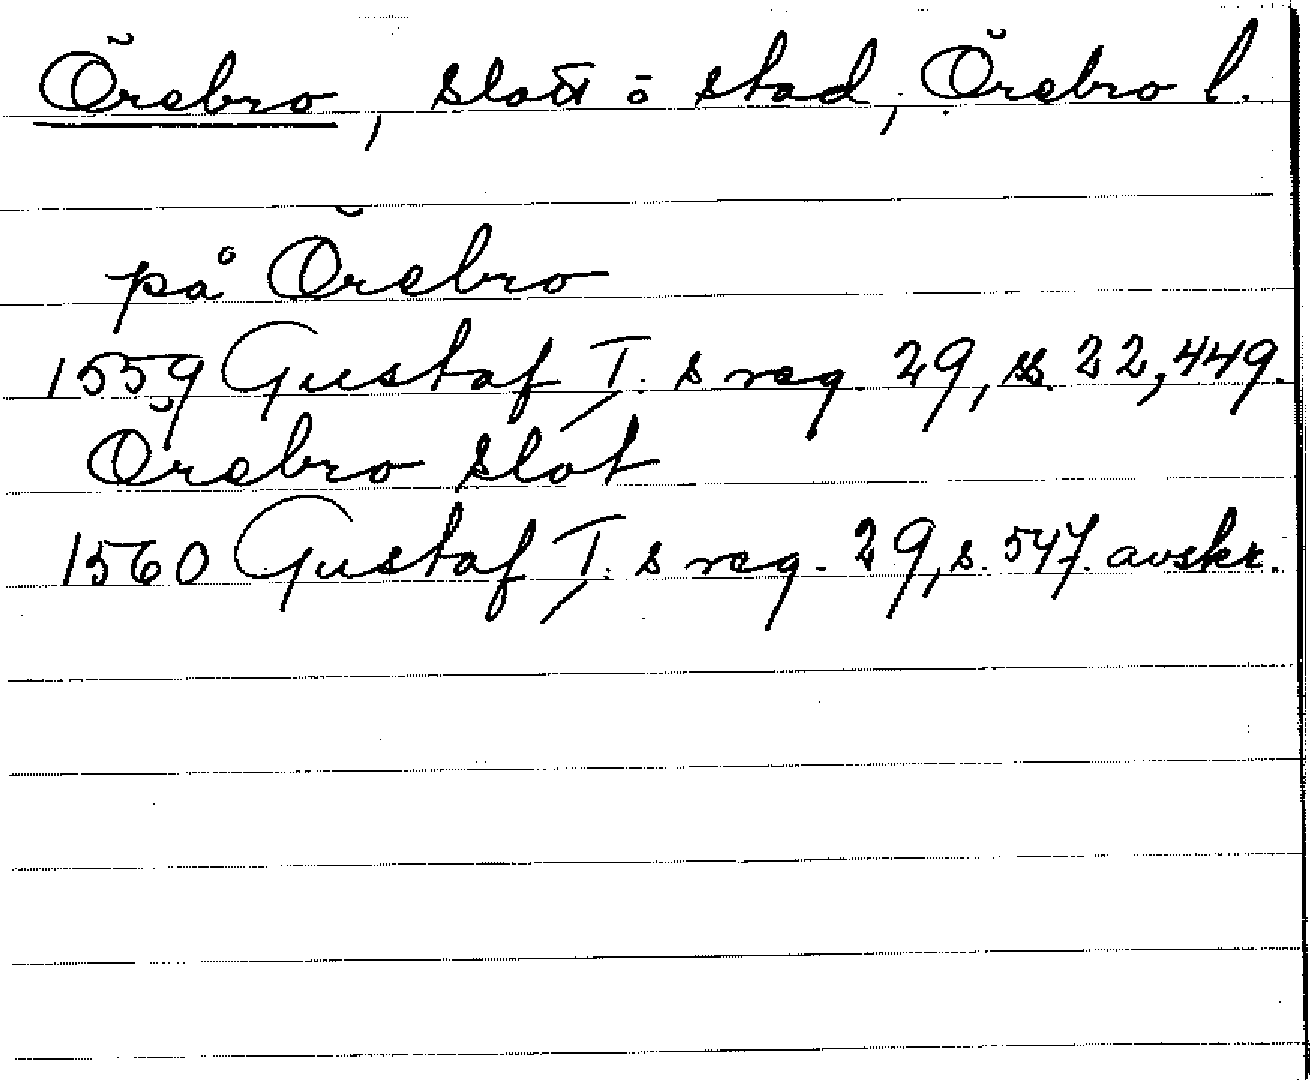 Örebro, slott o stad, Örebro l.
på Örebro
1559 Gustaf I:s reg. 29, ss. 22, 449.
Örebro slot
1560 Gustaf I:s reg. 29, s. 547. avskr.